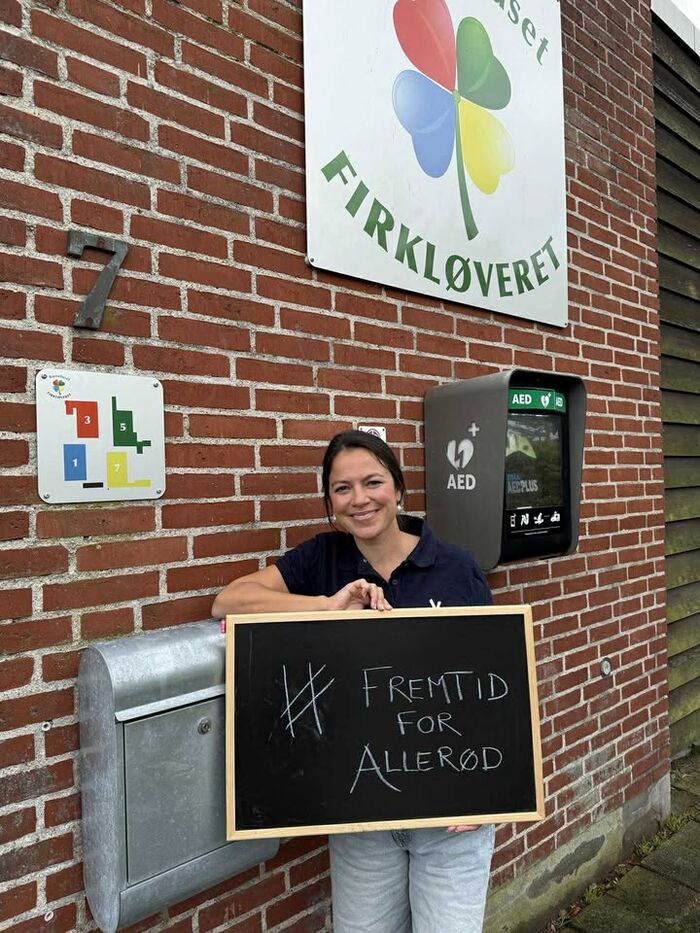 FIRKLØVERET
7
3
5
1
7
AED
AED
AED
AED PLUS
# FREMTID
FOR
ALLERØD